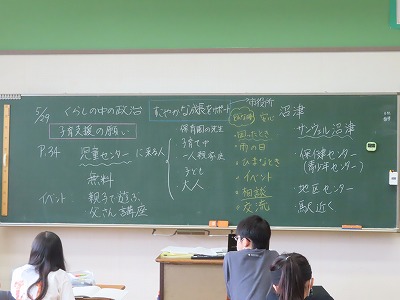 5/29 くらしの中の政治
すこやかな成長をサポート
子育支援の願い
P.34 児童センター に来る人
無料
イベント 親子で遊ぶ、
父さん講座
保育園の先生
子育て中
一人親家庭
子ども
大人
市役所
安心
・困ったとき
・雨の日
・ひまなとき
・イベント
・相談
・交流
沼津
サンウェル沼津
・保健センター
(青少年センター)
・地区センター
・駅近く